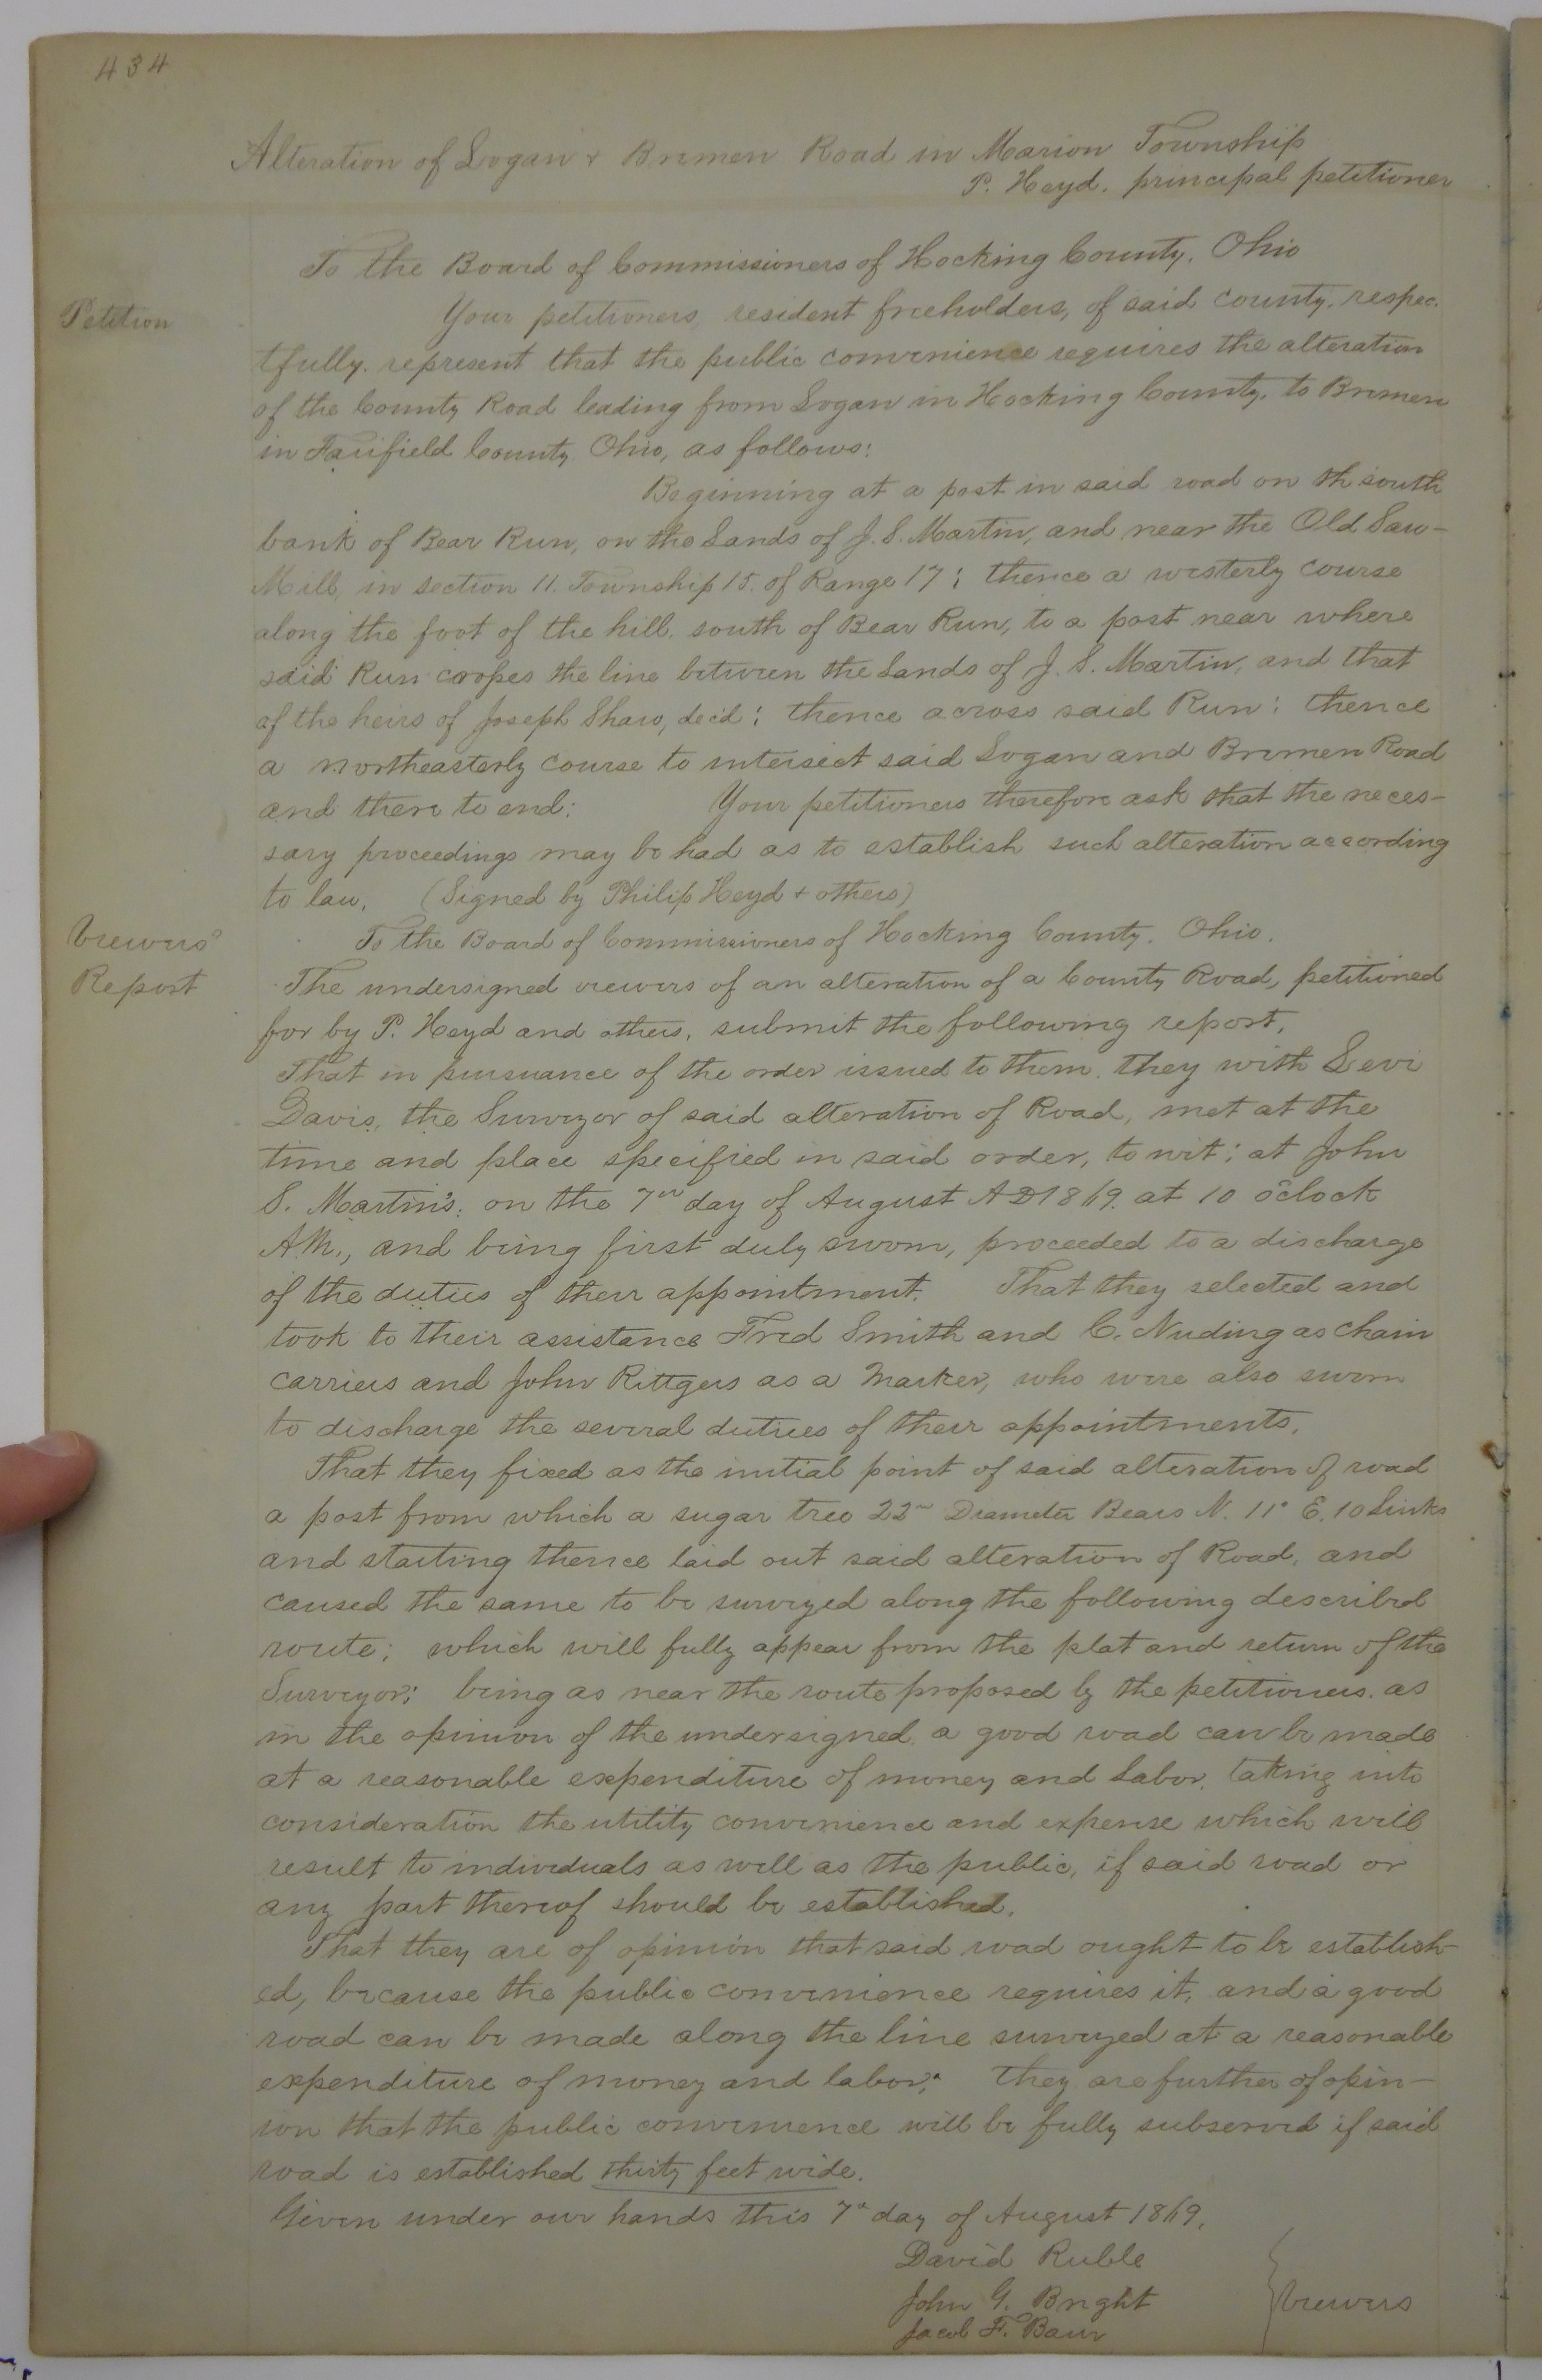 434
Alteration of Logan & Bremen Road in Marion Township
P. Heyd. principal petitioner
To the Board of Commissioners of Hocking County, Ohio
Petition
Your petitioners, resident freeholders, of said county, respec-
tfully represent that the public convenience requires the alteration
of the County Road leading from Logan in Hocking County, to Bremen
in Fairfield County Ohio, as follows:
Beginning at a post in said road on th south
bank of Bear Run, on the Lands of J. S. Martin, and near the Old Saw-
Mill, in section 11. Township 15. of Range 17; thence a westerly course
along the foot of the hill, south of Bear Run, to a post near where
said Run crosses the line between the Lands of J. S. Martin, and that
of the heirs of Joseph Shaw, dec'd; thence across said Run; thence
a northeasterly course to intersect said Logan and Bremen Road
and there to end: Your petitioners therefore ask that the neces-
sary proceedings may be had as to establish such alteration according
to law. (Signed by Philip Heyd & others)
Viewers'
Report
To the Board of Commissioners of Hocking County. Ohio.
The undersigned viewers of an alteration of a County Road, petitioned
for by P. Heyd and others, submit the following report.
That in pursuance of the order issued to them, they with Levi
Davis, the Surveyor of said alteration of Road, met at the
time and place specified in said order, to wit; at John
S. Martin's; on the 7th day of August AD 1869. at 10 o'clock
A.M., and being first duly sworn, proceeded to a discharge
of the duties of their appointment. That they selected and
took to their assistance Fred Smith and C. Nuding as chain
carriers and John Rittgers as a Marker, who were also sworn
to discharge the several duties of their appointments.
That they fixed as the initial point of said alteration of road
a post from which a sugar tree 22in Diameter Bears N. 11° E. 10 Links
and starting thence laid out said alteration of Road, and
caused the same to be surveyed along the following described
route; which will fully appear from the plat and return of the
Surveyor; being as near the route proposed by the petitioners, as
in the opinion of the undersigned, a good road can be made
at a reasonable expenditure of money and Labor, taking into
consideration the utility convenience and expense which will
result to individuals as well as the public, if said road or
any part thereof should be established.
That they are of opinion that said road ought to be establish-
ed, because the public convenience requires it, and a good
road can be made along the line surveyed at a reasonable
expenditure of money and labor; they are further of opin-
ion that the public convenience will be fully subserved if said
road is established thirty feet wide.
Given under our hands this 7th day of August 1869.
David Ruble
John G. Bright
Viewers
Jacob F. Baur